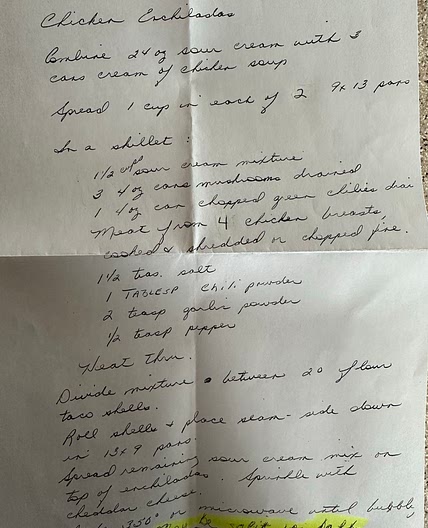 Chicken Enchiladas
Combine 24 oz sour cream with 3
cans cream of chicken soup
Spread 1 cup in each of 2 9x13 pans
In a skillet :
1 1/2 cups sour cream mixture
3 4 oz cans mushrooms drained
1 4 oz can chopped green chilies drai
Meat from 4 chicken breasts,
cooked & shredded or chopped fine.
1 1/2 teas. salt
1 TABLESP chili powder
2 teasp garlic powder
1/2 teasp pepper
Heat thru.
Divide mixture between 20 flour
taco shells.
Roll shells & place seam-side down
in 13x9 pans.
Spread remaining sour cream mix on
top of enchiladas. Sprinkle with
cheddar cheese.
350° or microwave until bubbly
May be